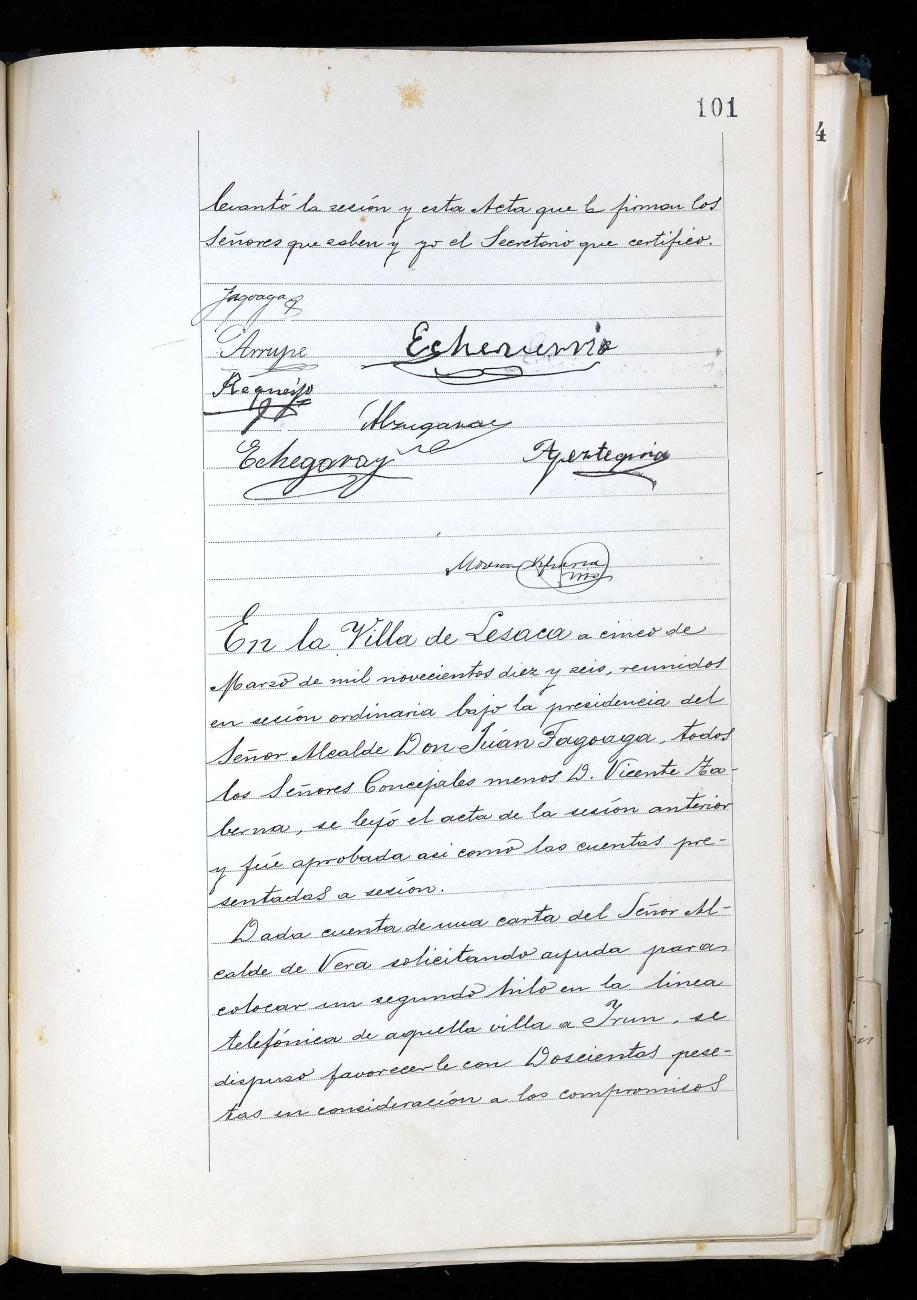 101
4
levantó la sesión y esta Acta que la firman los
Señores que saben y yo el Secretario que certifico.
Fagoaga
Arrupe
Echeverria
Requeijo
Alzugaray
Echegaray
Apezteguia
En la Villa de Lesaca a cinco de
Marzo de mil novecientos diez y seis, reunidos
en sesión ordinaria bajo la presidencia del
Señor Alcalde Don Juán Fagoaga, todos
los Señores Concejales menos D. Vicente Ta-
berna, se leyó el acta de la sesión anterior
y fué aprobada asi como las cuentas pre-
sentadas a sesión.
Dada cuenta de una carta del Señor Al-
calde de Vera solicitando ayuda para
colocar un segundo hilo en la linea
telefónica de aquella villa a Irun, se
dispuso favorecerle con Doscientas pese-
tas en consideración a los compromisos